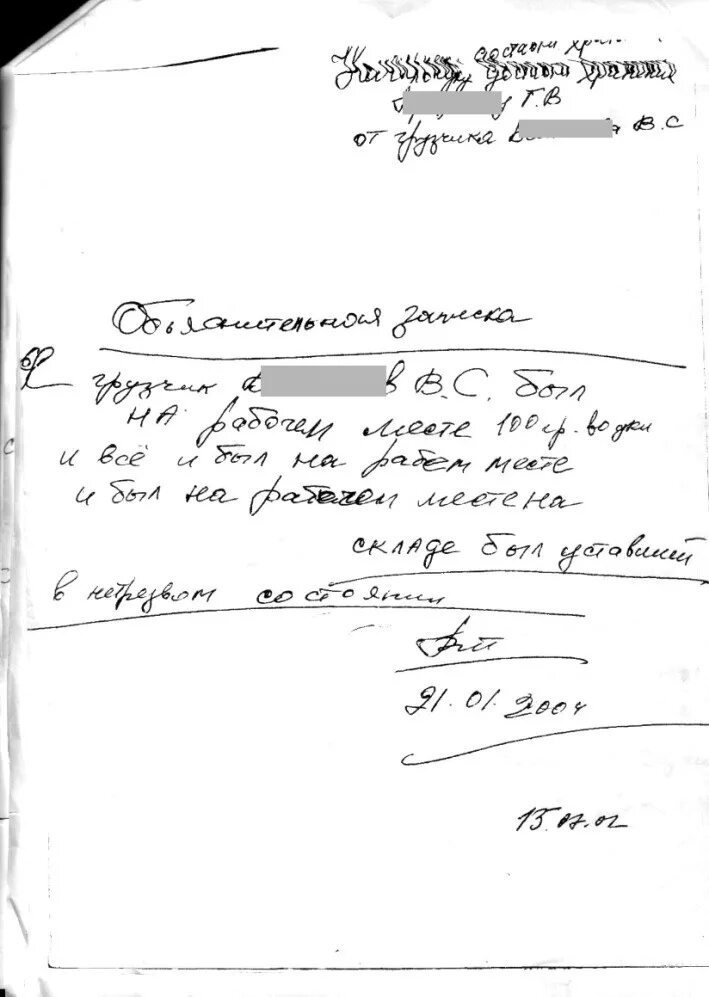 Г.В
от грузчика В.С
Объяснительная записка
грузчик в В.С. был
на рабочем месте 100 гр. водки
и всё и был на рабем месте
и был на рабочем месте на
складе был уставший
в нетрезвом состоянии
21.01.2004